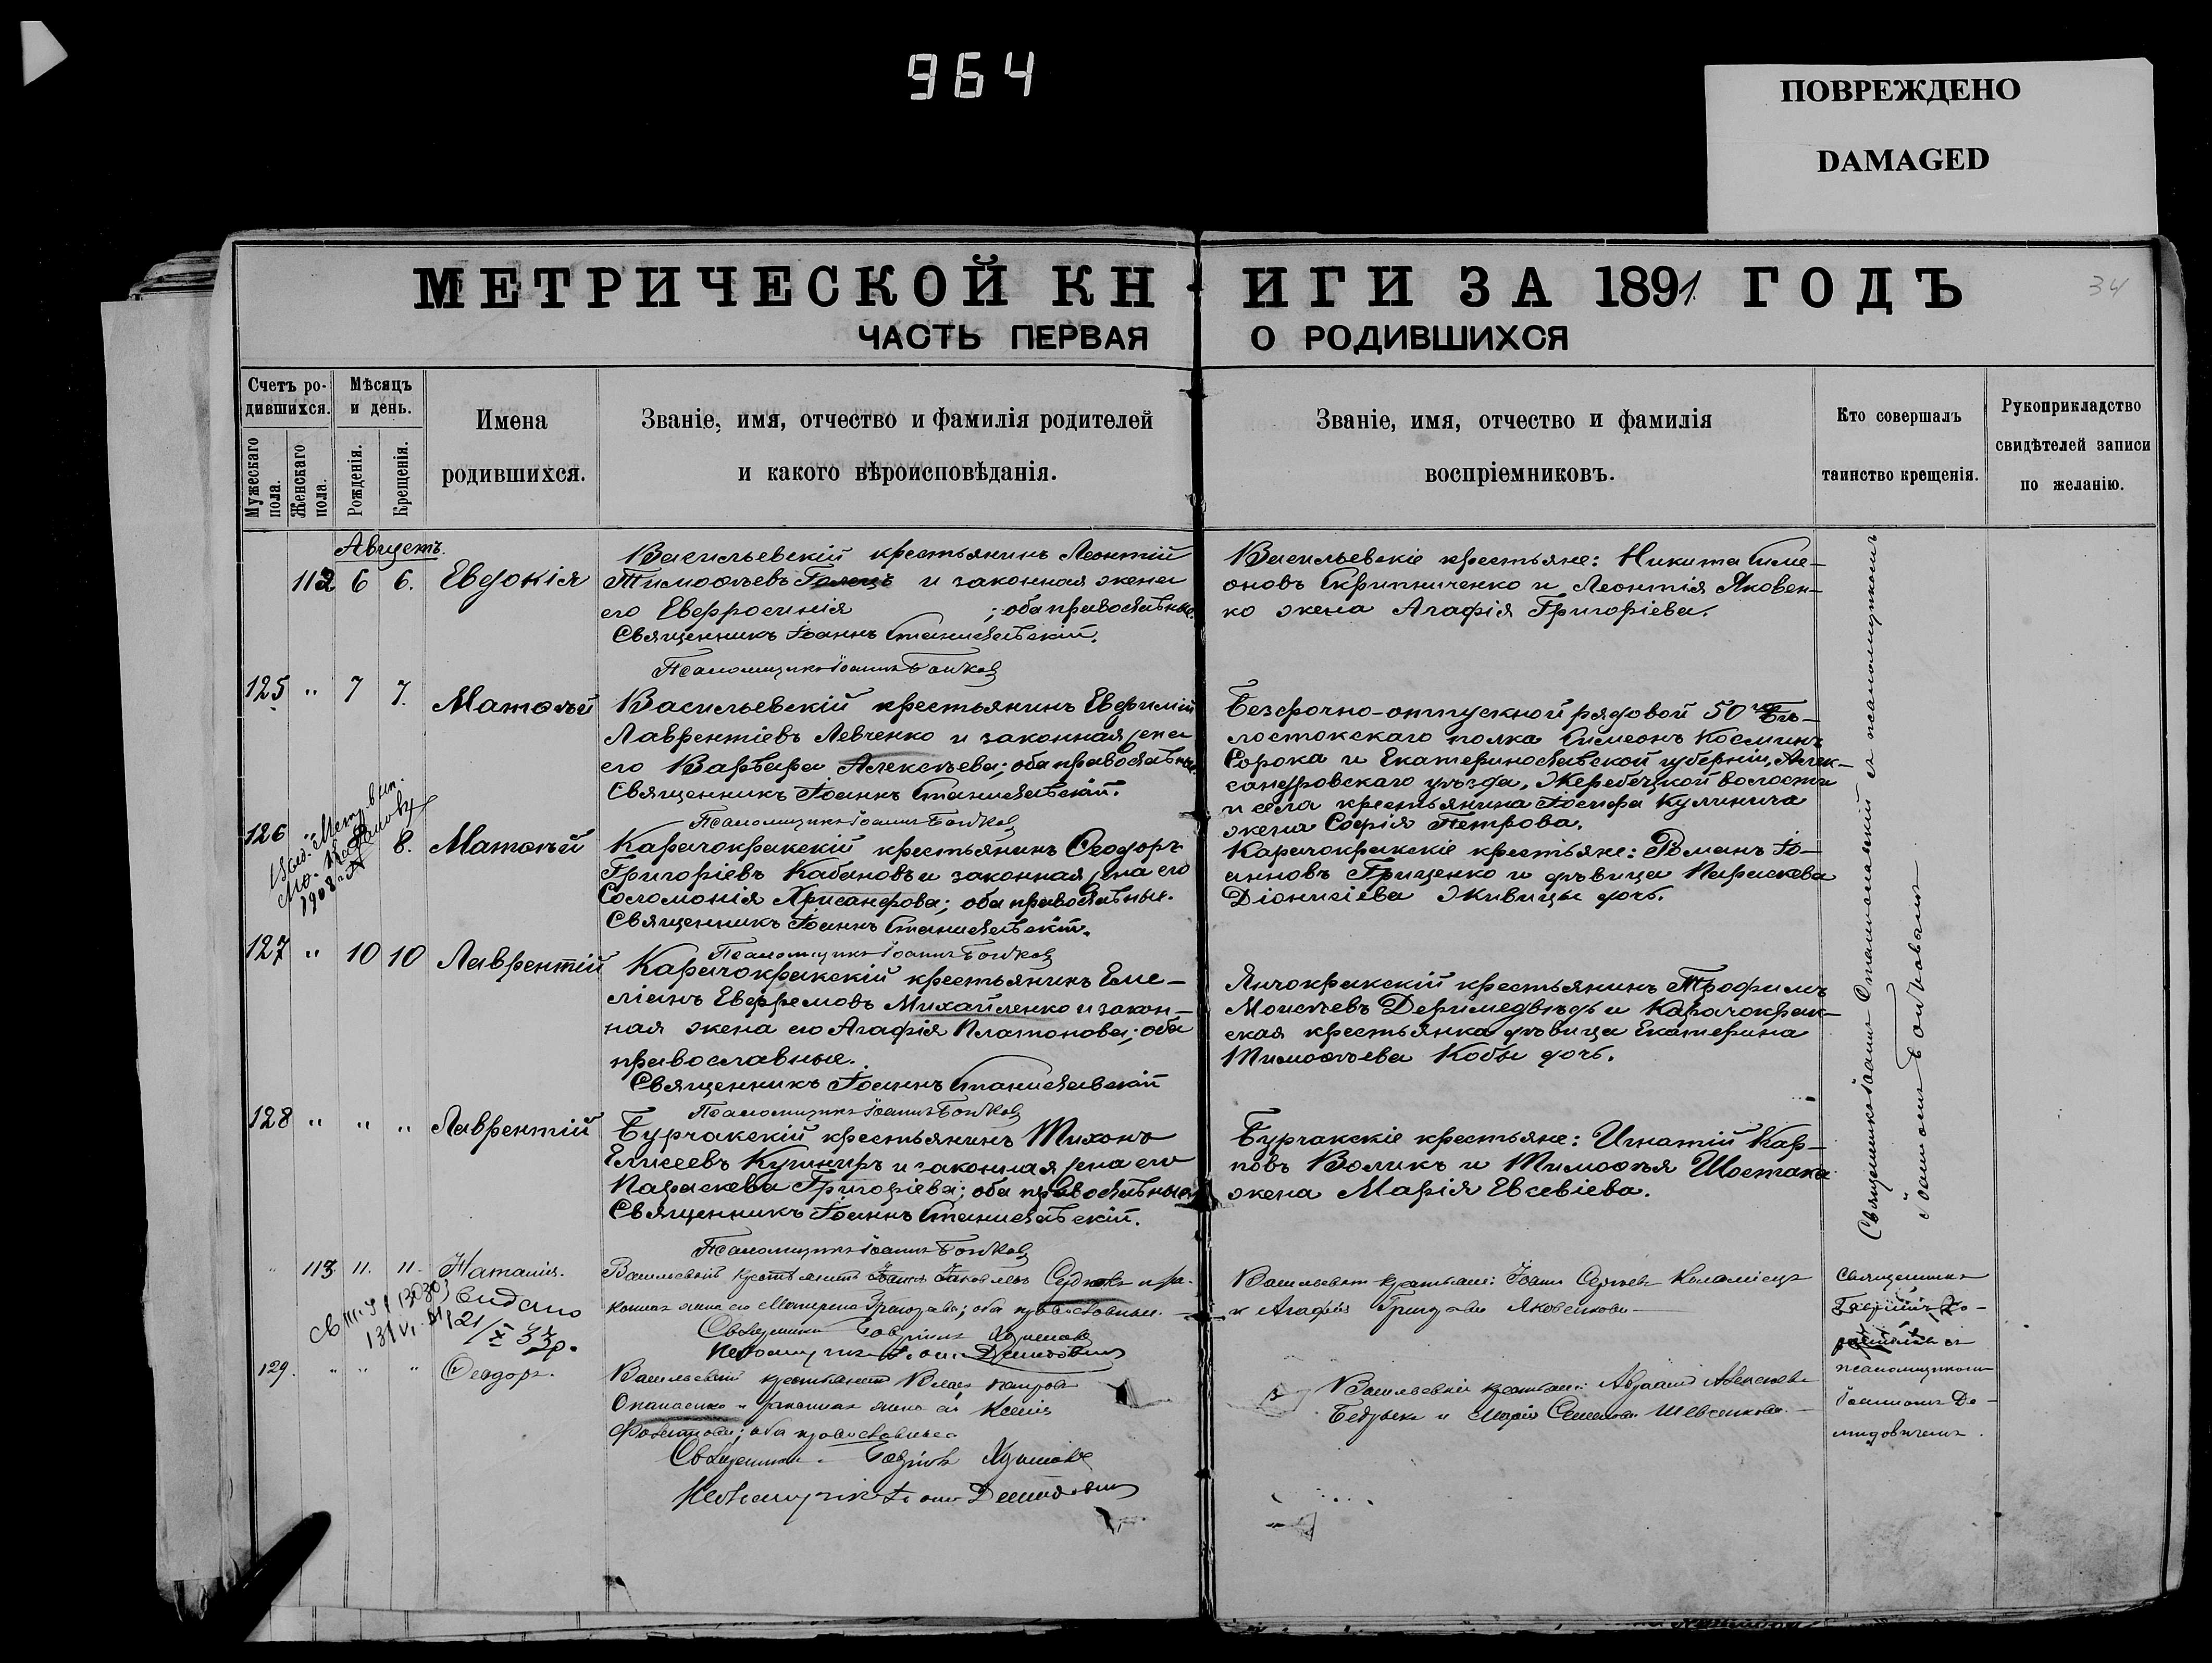 964
ПОВРЕЖДЕНО
DAMAGED
МЕТРИЧЕСКОЙ КНИГИ ЗА 1891 ГОДЪ
34
ЧАСТЬ ПЕРВАЯ О РОДИВШИХСЯ
Счетъ ро-
дившихся.
Мужескаго пола.
Женскаго пола.
Мѣсяцъ
и день.
Рожденія.
Крещенія.
Имена
родившихся.
Званіе, имя, отчество и фамилія родителей
и какого вѣроисповѣданія.
Званіе, имя, отчество и фамилія
воспріемниковъ.
Кто совершалъ
таинство крещенія.
Рукоприкладство
свидѣтелей записи
по желанію.
Августъ.
112 6 6. Евдокія
Васильевскій крестьянинъ Леонтій
Тимоѳѣевъ Голецъ и законная жена
его Евфросинія ; оба православные.
Священникъ Іоаннъ Станиславскій.
Псаломщикъ Іоаннъ
Васильевскіе крестьяне: Никита Симе-
оновъ Скрипниченко и Леонтія Яковен-
ко жена Агафія Григоріева.
125 " 7 7. Матѳѣй
Васильевскій крестьянинъ Евфимій
Лаврентіевъ Левченко и законная жена
его Варвара Алексѣева; оба православные
Священникъ Іоаннъ Станиславскій.
Псаломщикъ Іоаннъ
Безсрочно-отпускной рядовой 50го Бѣ-
лостокскаго полка Симеонъ Косминъ
Сорока и Екатеринославской губерніи, Алек-
сандровскаго уѣзда, Жеребецкой волости
и села крестьянина Іосифа Кулинича
жена Софія Петрова.
126 " 8. Матѳѣй
1908
Карачокракскій крестьянинъ Ѳеодоръ
Григоріевъ Кабановъ и законная жена его
Соломонія Хрисанфова; оба православные.
Священникъ Іоаннъ Станиславскій.
Псаломщикъ Іоаннъ
Карачокракскіе крестьяне: Романъ Іо-
анновъ Гриценко и дѣвица Параскева
Діонисіева Живицы дочь.
127 " 10 10 Лаврентій
Карачокракскій крестьянинъ Еме-
ліанъ Евфремовъ Михайленко и закон-
ная жена его Агафія Платонова; оба
православные.
Священникъ Іоаннъ Станиславскій
Псаломщикъ Іоаннъ
Янчокракскій крестьянинъ Трофимъ
Моисѣевъ Деримедвѣдь и Карачокрак-
ская крестьянка дѣвица Екатерина
Тимоѳѣева Кобы дочь.
128 " " " Лаврентій
Бурчакскій крестьянинъ Тихонъ
Елисеевъ Кушниръ и законная жена его
Параскева Григоріева; оба православные
Священникъ Іоаннъ Станиславскій.
Псаломщикъ Іоаннъ
Бурчакскіе крестьяне: Игнатій Кар-
повъ Воликъ и Тимоѳѣя Шостака
жена Марія Евсевіева.
Священникъ Іоаннъ Станиславскій съ псаломщикомъ
Іоанномъ
" 113 11. 11. Наталія.
видано
Васильевскій крестьянинъ Іоаннъ Яковлевъ и за-
конная жена его ; оба православные.
Священникъ Гавріилъ
Псаломщикъ Іоаннъ Демидовичъ
Васильевскіе крестьяне: Іоаннъ Сергѣевъ Коломіецъ
и Агафія Яковенкова
Священникъ
Гавріилъ
съ
псаломщикомъ
Іоанномъ Де-
мидовичемъ.
129. " " " Ѳеодоръ.
Васильевскій крестьянинъ Власъ Петровъ
Опанасенко и законная жена его Ксенія
; оба православные
Священникъ Гавріилъ
Псаломщикъ Іоаннъ Демидовичъ
Васильевскіе крестьяне: Авраамъ Алексѣевъ
и Марія Семенова Шевченкова.